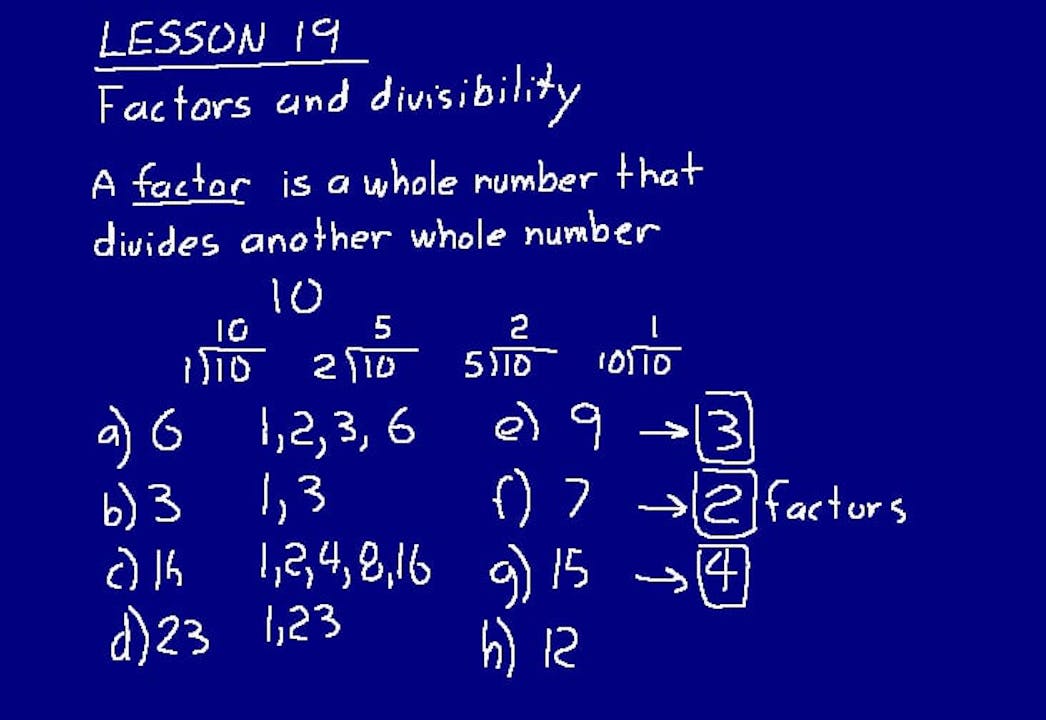 LESSON 19
Factors and divisibility
A factor is a whole number that
divides another whole number
10
10 5 2 1
1)10 2)10 5)10 10)10
a) 6 1,2,3,6 e) 9 → 3
b) 3 1,3 f) 7 → 2 factors
c) 16 1,2,4,8,16 g) 15 → 4
d) 23 1,23 h) 12